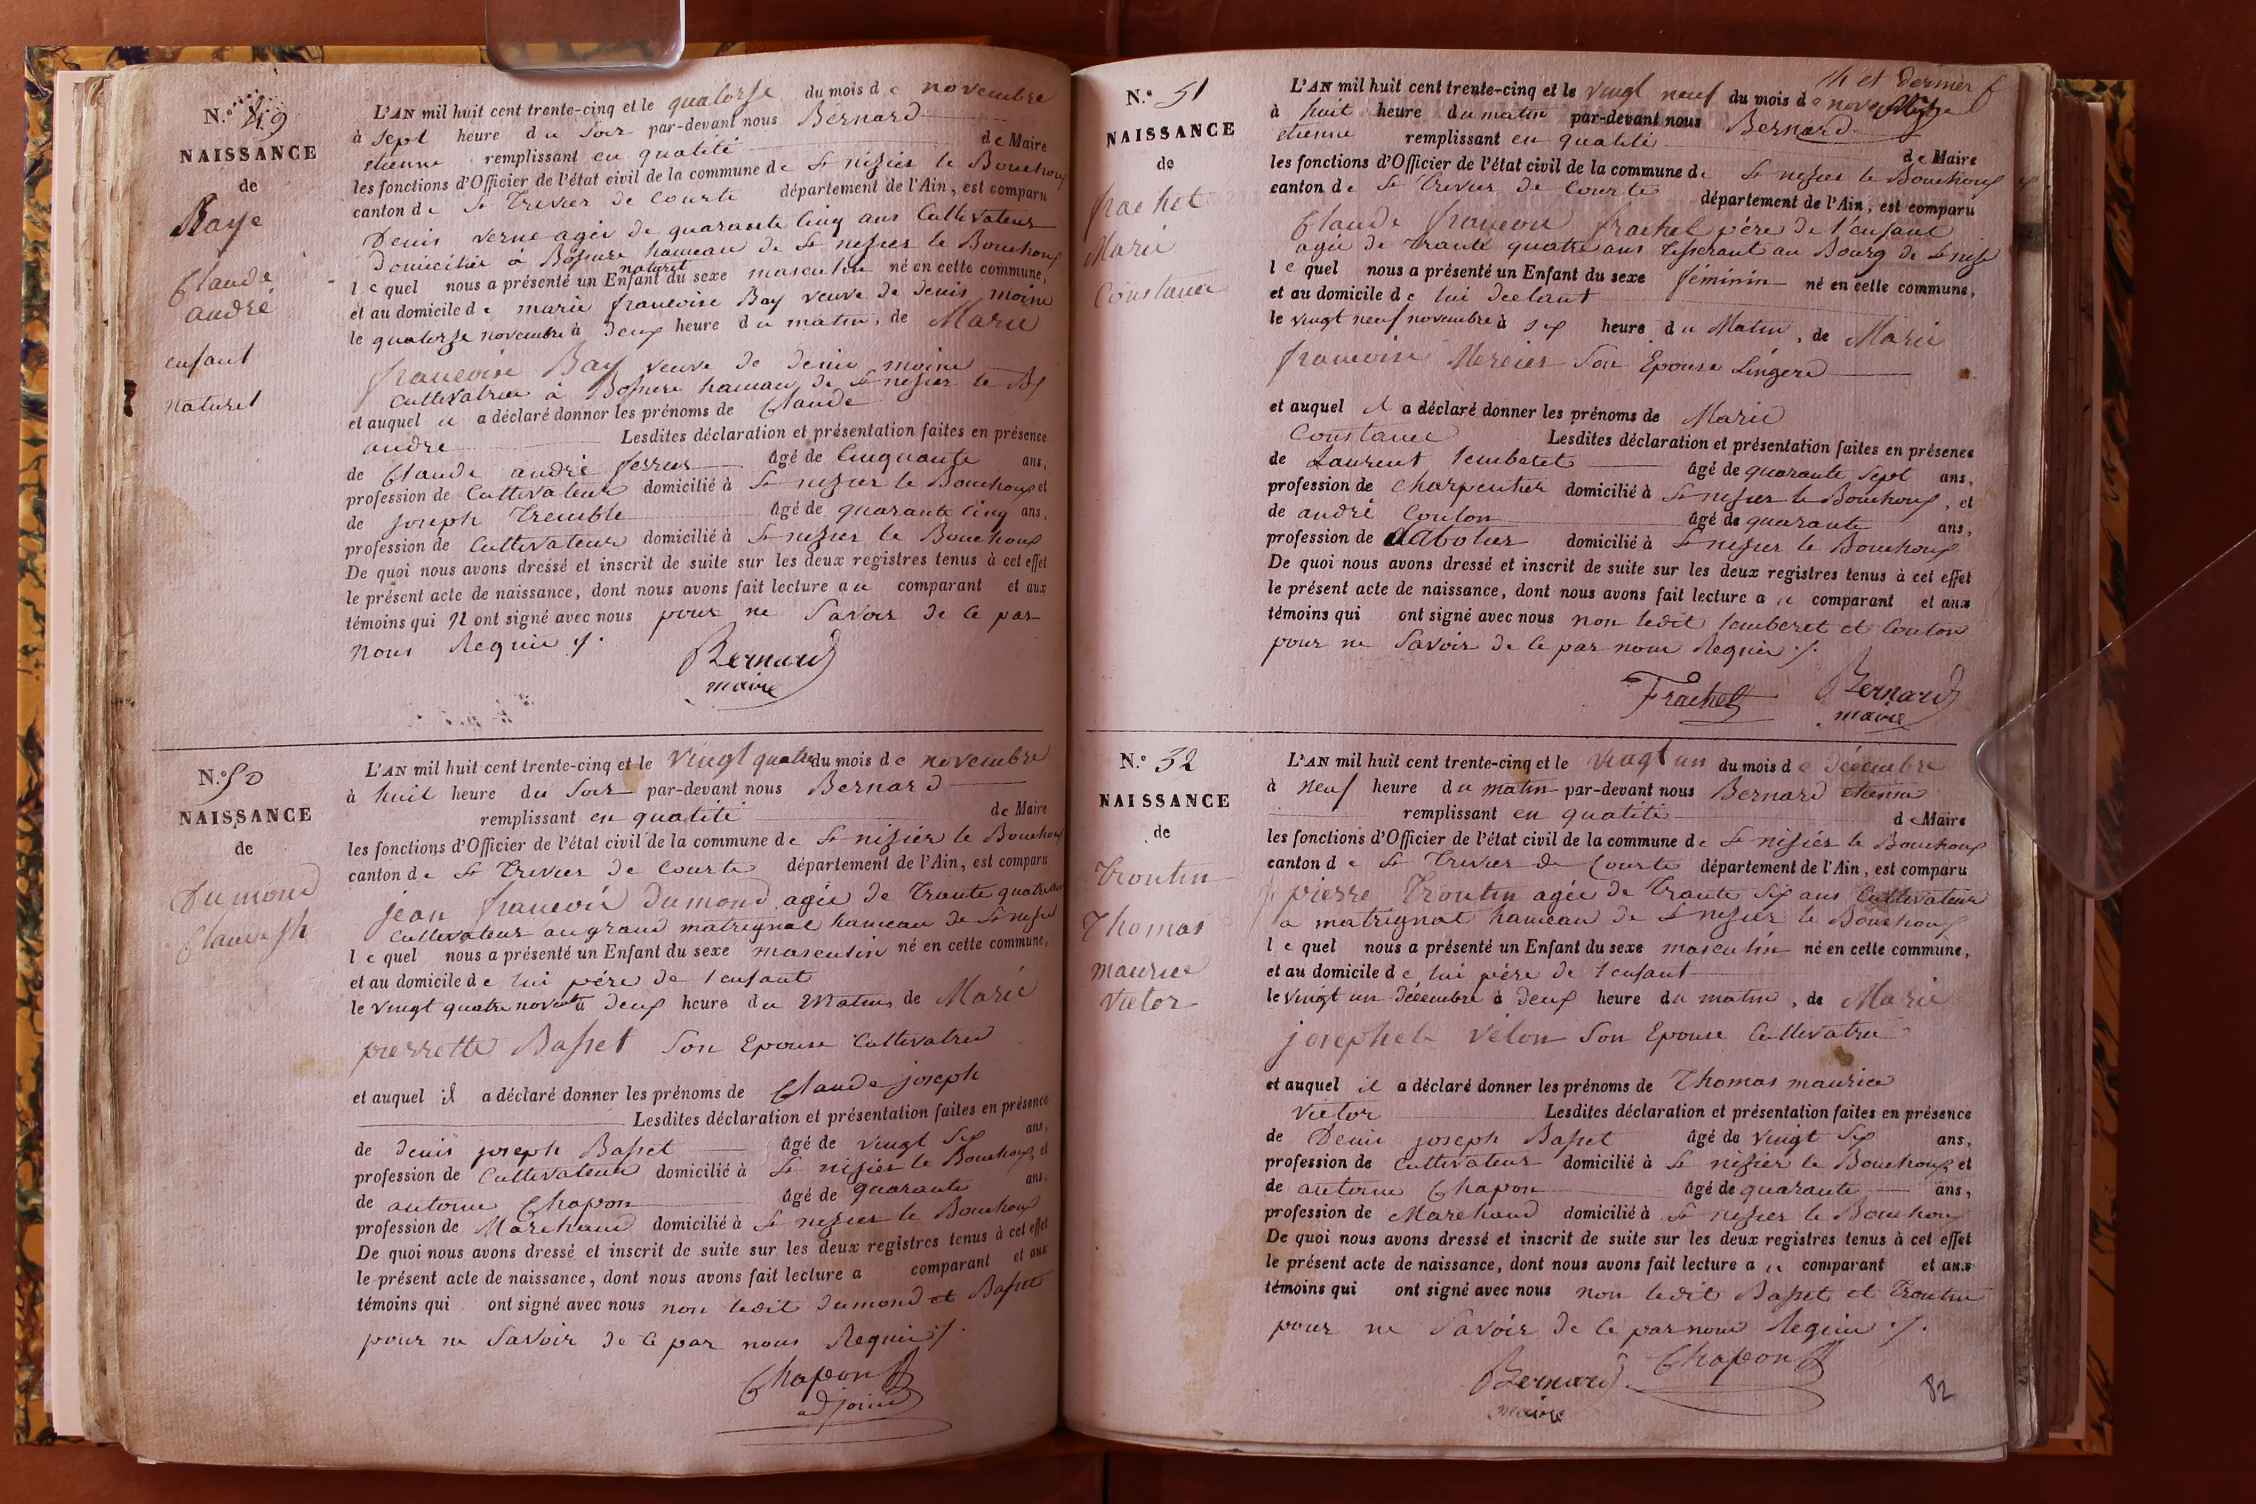 N.° 49
NAISSANCE
de
Baye
Claude
andré
enfant
naturel
L'AN mil huit cent trente-cinq et le quatorze du mois de novembre
à sept heure du soir par-devant nous Bernard
etienne remplissant en qualité de Maire
les fonctions d'Officier de l'état civil de la commune de St nizier le Bouchoux
canton de St Trivier de Courte département de l'Ain, est comparu
Denis verne agée de quarante cinq ans Cultivateur
Domiciliée à Bossure hameau de St nizier le Bouchoux
le quel nous a présenté un Enfant naturel du sexe masculin né en cette commune,
et au domicile de marie francoise Bay veuve de denis moine
le quatorze novembre à deux heure du matin, de Marie
francoise Bay veuve de denis moine
Cultivatrice à Bossure hameau de St nizier le Bx
et auquel il a déclaré donner les prénoms de Claude
andre Lesdites déclaration et présentation faites en présence
de Claude andré ferrier âgé de Cinquante ans,
profession de Cultivateur domicilié à St nizier le Bouchoux et
de joseph Tremble âgé de quarante cinq ans,
profession de Cultivateur domicilié à St nizier le Bouchoux
De quoi nous avons dressé et inscrit de suite sur les deux registres tenus à cet effet
le présent acte de naissance, dont nous avons fait lecture au comparant et aux
témoins qui n ont signé avec nous pour ne Savoir de ce par
nous Requis ./.
Bernard
maire
N.° 50
NAISSANCE
de
Dumond
Claude jh
L'AN mil huit cent trente-cinq et le vingt quatre du mois de novembre
à huit heure du soir par-devant nous Bernard
remplissant en qualité de Maire
les fonctions d'Officier de l'état civil de la commune de St nizier le Bouchoux
canton de St Trivier de Courte département de l'Ain, est comparu
jean francois Dumond agée de Trante quatre ans
Cultivateur au grand matrignat hameau de St nizier
le quel nous a présenté un Enfant du sexe masculin né en cette commune,
et au domicile de lui père de l'enfant
le vingt quatre novembre à deux heure du Matin, de Marie
pierrette Basset Son Epouse Cultivatrice
et auquel il a déclaré donner les prénoms de Claude joseph
Lesdites déclaration et présentation faites en présence
de denis joseph Basset âgé de vingt Six ans,
profession de Cultivateur domicilié à St nizier le Bouchoux, et
de antoine Chapon âgé de quarante ans,
profession de Marchand domicilié à St nizier le Bouchoux
De quoi nous avons dressé et inscrit de suite sur les deux registres tenus à cet effet
le présent acte de naissance, dont nous avons fait lecture a comparant et aux
témoins qui ont signé avec nous non ledit dumond et Basset
pour ne Savoir de ce par nous Requis ./.
Chapon
adjoint
14 et dernier f
N.° 51
NAISSANCE
de
frachet
Marie
Constance
L'AN mil huit cent trente-cinq et le vingt neuf du mois de novembre
à huit heure du matin par-devant nous Bernard
etienne remplissant en qualité de Maire
les fonctions d'Officier de l'état civil de la commune de St nizier le Bouchoux
canton de St Trivier de Courte département de l'Ain, est comparu
Claude francois frachet père de l'enfant
agée de Trante quatre ans Tisserant au Bourg de St niz
le quel nous a présenté un Enfant du sexe féminin né en cette commune,
et au domicile de lui declarant
le vingt neuf novembre à six heure du Matin, de Marie
francoise Mercier Son Epouse Lingere
et auquel il a déclaré donner les prénoms de Marie
Constance Lesdites déclaration et présentation faites en présence
de Laurent lemberet âgé de quarante sept ans,
profession de charpentier domicilié à St nizier le Bouchoux, et
de andré Couton âgé de quarante ans,
profession de Sabotier domicilié à St nizier le Bouchoux
De quoi nous avons dressé et inscrit de suite sur les deux registres tenus à cet effet
le présent acte de naissance, dont nous avons fait lecture au comparant et aux
témoins qui ont signé avec nous non ledit lemberet et Couton
pour ne Savoir de ce par nous Requis ./.
Frachet Bernard
maire
N.° 52
NAISSANCE
de
Troutin
Thomas
maurice
victor
L'AN mil huit cent trente-cinq et le vingt un du mois de décembre
à neuf heure du matin par-devant nous Bernard etienne
remplissant en qualité de Maire
les fonctions d'Officier de l'état civil de la commune de St nizier le Bouchoux
canton de St Trivier de Courte département de l'Ain, est comparu
pierre Troutin agée de Trante Six ans Cultivateur
a matrignat hameau de St nizier le Bouchoux
le quel nous a présenté un Enfant du sexe masculin né en cette commune,
et au domicile de lui père de l'enfant
le vingt un décembre à deux heure du matin, de Marie
josephete vélon Son Epouse Cultivatrice
et auquel il a déclaré donner les prénoms de Thomas maurice
victor Lesdites déclaration et présentation faites en présence
de Denis joseph Basset âgé de vingt Six ans,
profession de Cultivateur domicilié à St nizier le Bouchoux et
de antoine Chapon âgé de quarante ans,
profession de Marchand domicilié à St nizier le Bouchoux
De quoi nous avons dressé et inscrit de suite sur les deux registres tenus à cet effet
le présent acte de naissance, dont nous avons fait lecture au comparant et aux
témoins qui ont signé avec nous non ledit Basset et Troutin
pour ne Savoir de ce par nous Requis ./.
Bernard Chapon
maire
82